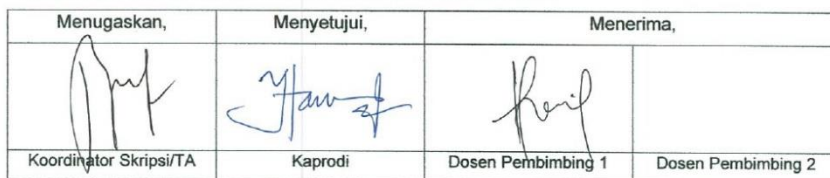 Menugaskan, Menyetujui, Menerima,
Koordinator Skripsi/TA Kaprodi Dosen Pembimbing 1 Dosen Pembimbing 2